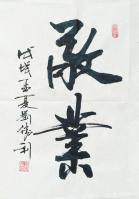 敬業
戊戌孟夏利